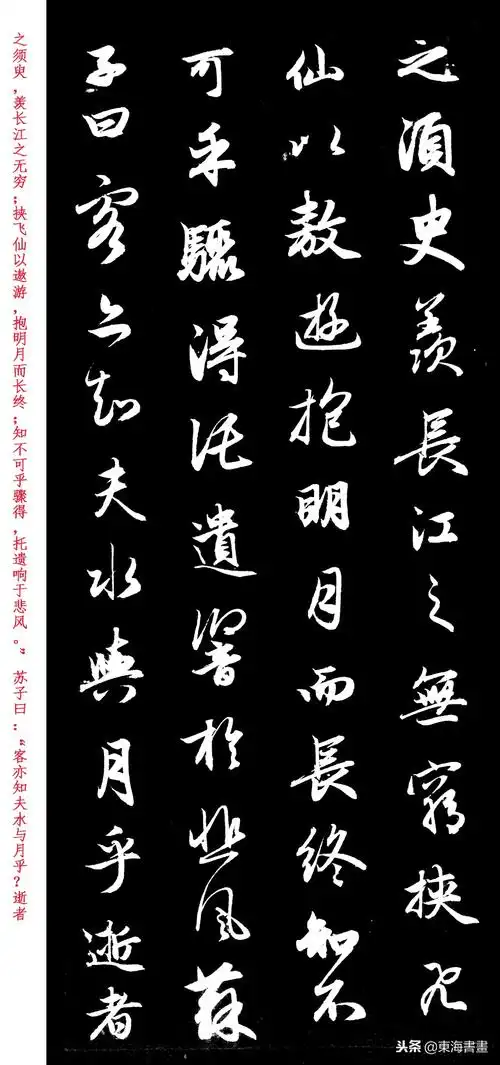 之須臾羨長江之無窮挾飛
仙以敖遊抱明月而長終知不
可乎驟得託遺響於悲風蘇
子曰客亦知夫水與月乎逝者
之须臾，羡长江之无穷；挟飞仙以遨游，抱明月而长终；知不可乎骤得，托遗响于悲风。” 苏子曰：“客亦知夫水与月乎？逝者
头条 @東海書畫